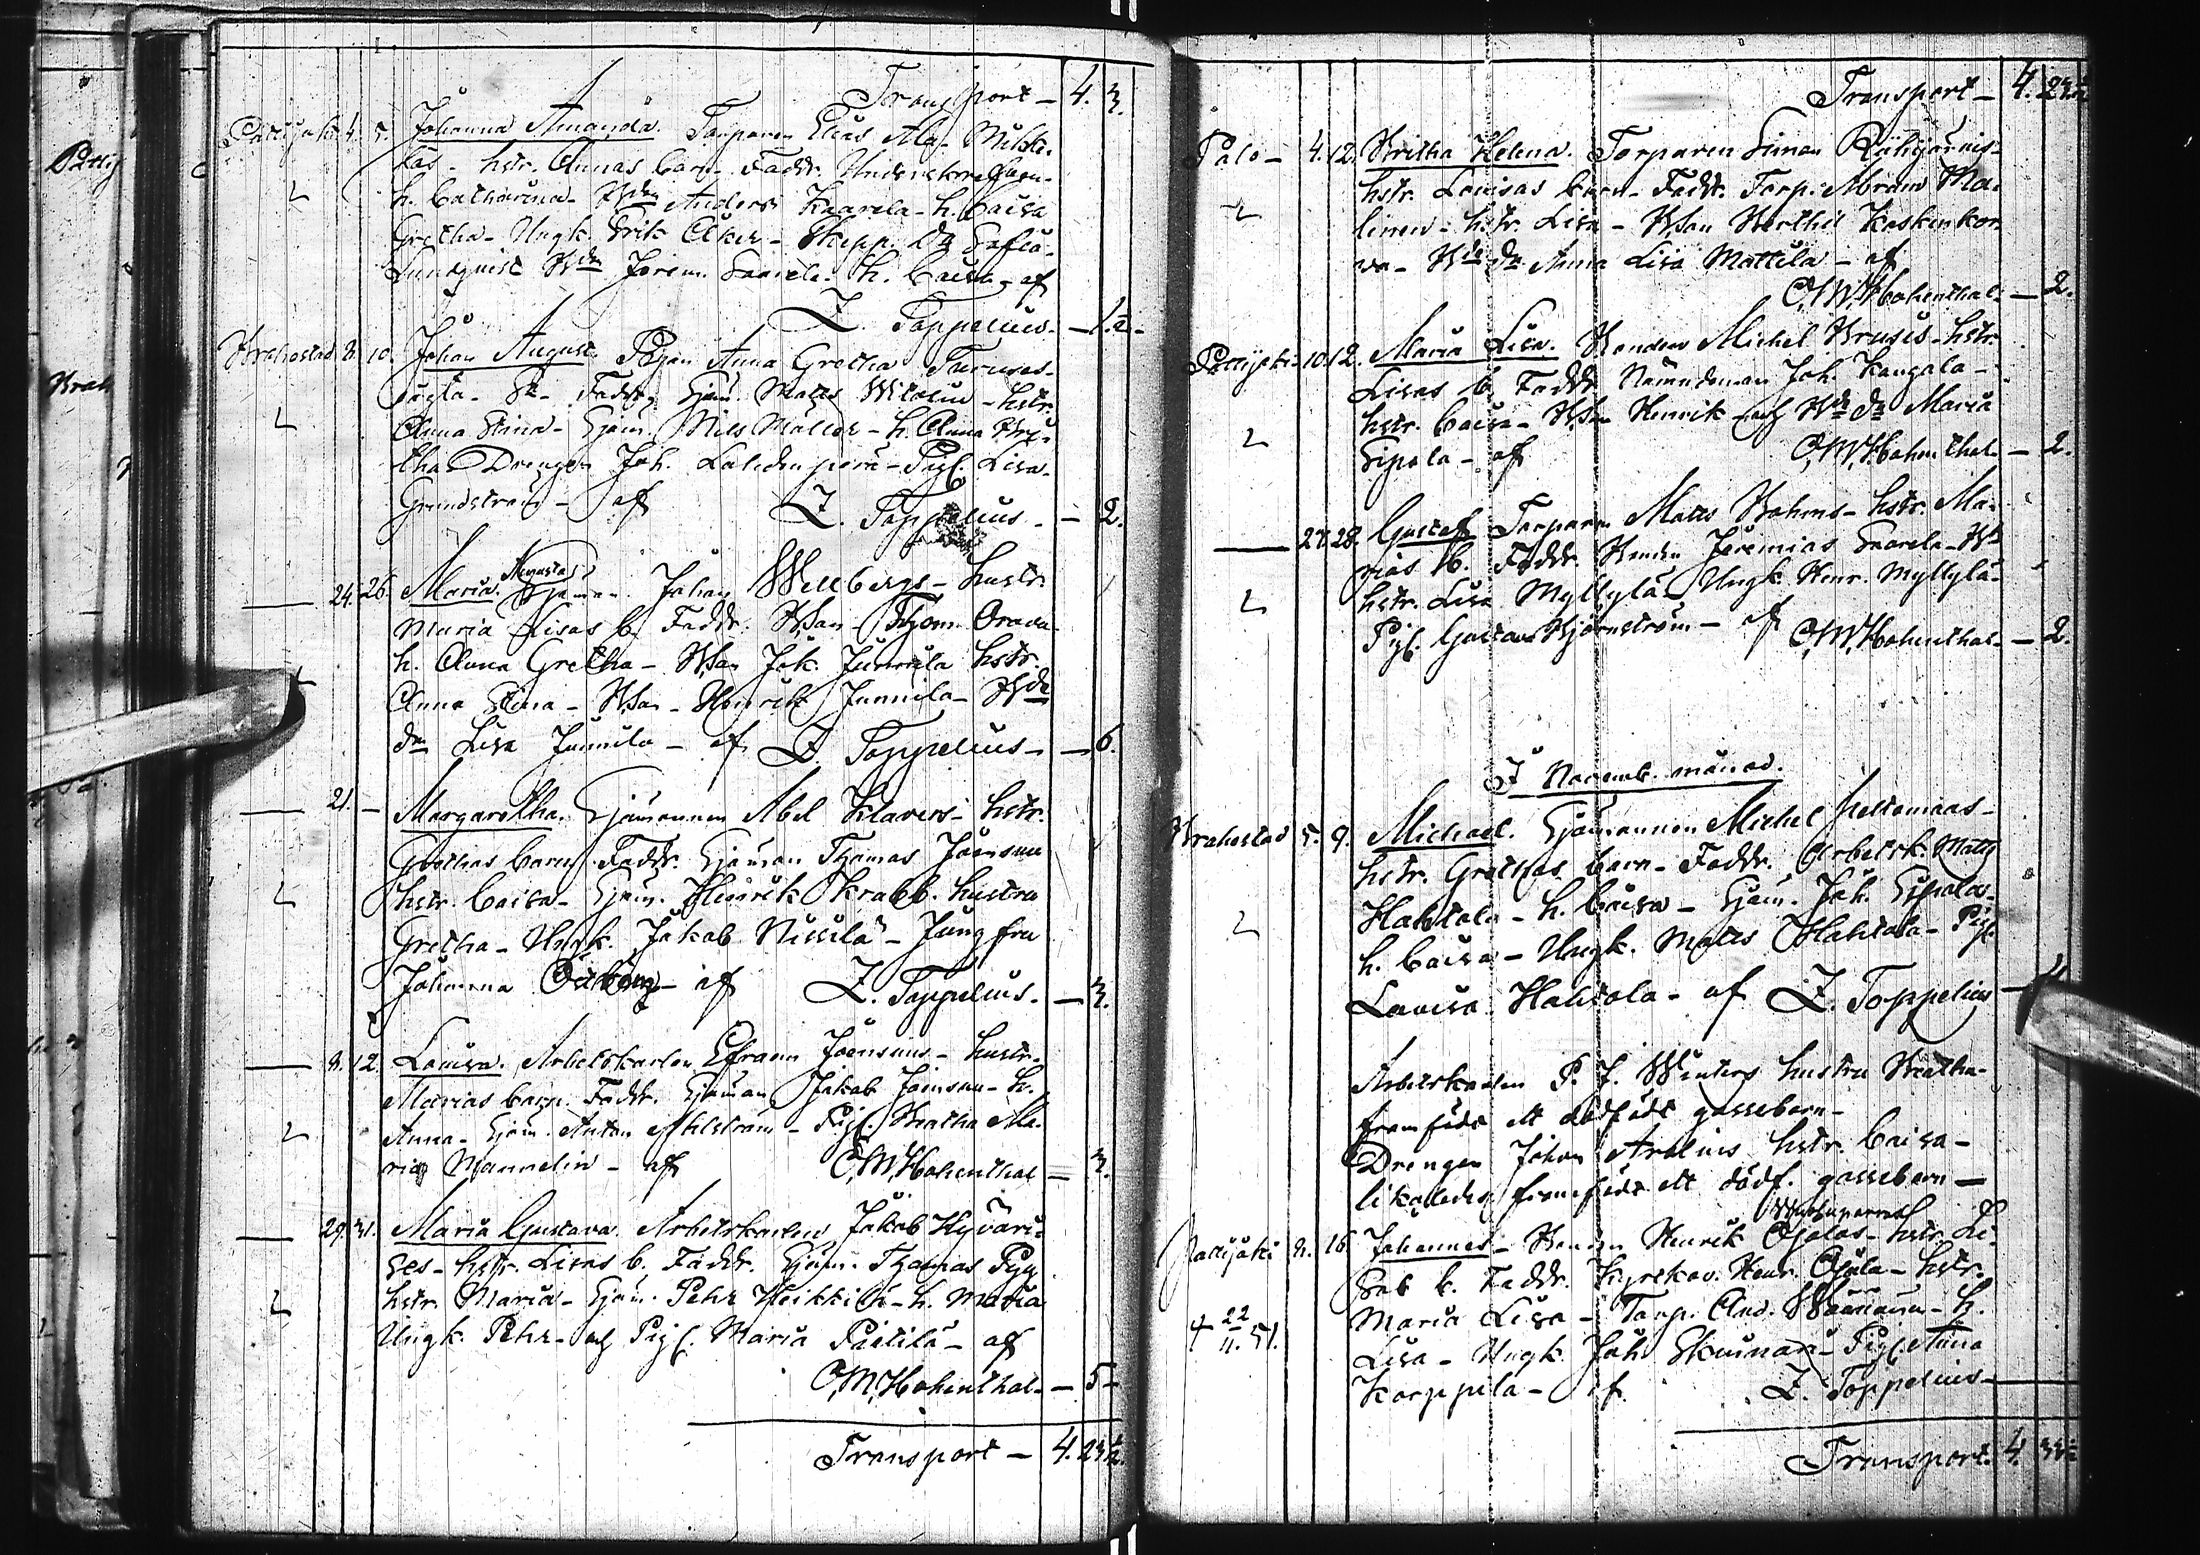 Transport - 4. 3.
Pattijoki 4. 5. Johanna Amanda. Torparen Elias Ala- Mikko-
las - hstr. Annas barn. Faddr.
h. Catharina - Anders Kaarela - h. Caisa
Gretha - Ungk. Erik - Skepp. Sofia
Lundquist Jerem. Saarela h. Caisa - af
Z. Toppelius - - 1.½.
Brahestad 8. 10. Johan August. Pigan Anna Gretha
oägta - Faddr. Sjöm. Matts - hstr.
Anna Stina - Sjöm. Nils Möller - h. Anna Bri-
tha Drengen Joh. - Pig. Lisa
Grundström - af Z. Toppelius - - 2.
Augusta
24. 26. Maria. Sjöman. Johan Wellbergs - hustr.
Maria Lisas b. Faddr. Bdsn Thom. Orava
h. Anna Gretha - Bdsn Jak. Junnila hstr.
Anna Stina - Bdsn Henrik Junnila - Bde
dr Lisa Junnila - af Z. Toppelius - - 6.
21. - Margaretha. Sjömannen Abel Klavers - hstr.
Grethas barn. Faddr. Sjöman Thomas Joensuu
hstr. Caisa - Sjöm. Henrik Krabb. hustru
Gretha - Ungk. Jakob Nissilä - Jungfru
Johanna af Z. Toppelius. - 3.
8. 12. Lovisa. Arbetskarlen Efraim Joensuus - hustr.
Marias barn. Faddr. Sjöman Jakob Joensuu - h.
Anna - Sjöm. Anton Ahlström - Pig. Breatha Ma-
ria Mannelin - af C.M. Hohenthal - 3.
29. 31. Maria Gustava. Arbetskarlen Jakob Hyväri-
ses - hstr. Lisas b. Faddr. Sjöm. Thomas Pyy
hstr. Maria - Sjöm. Pehr Heikkilä - h. Maria
Ungk. Pehr - och Pig. Maria Pietilä - af
C.M. Hohenthal - - 5 -
Transport - 4. 23½.
Transport - 4. 23½
Palo - 4. 12. Britha Helena. Torparen Simon Riihijärvis -
hstr. Lovisas barn - Faddr. Torp. Abram Ma-
linen - hstr. Lisa - Bdsn Berthil Koskenkor-
va - Bde dr Anna Lisa Mattila - af
C.M. Hohenthal - - 2.
Pattijoki - 10. 12. Maria Lisa. Bonden Michel Bruses - hstr.
Lisas b. Faddr. Nämndeman Joh. Kangala -
hstr. Caisa - Bdsn Henrik - och Bde dr Maria
Sipola - af C.M. Hohenthal - - 2.
27. 28. Gustaf Torparen Matts Bohms - hstr. Ma-
rias b. Faddr. Bonden Jeremias Saarela - Bd
hstr. Lisa Myllylä - Ungk. Henr. Myllylä -
Pig. Gustava Björnström - af C.M. Hohenthal - - 2.
I Novemb. månad.
Brahestad 5. 9. Michael. Sjömannen Michel Peltomaas -
hstr. Grethas barn - Faddr. Arbetsk. Matts
Hahtala - h. Caisa - Sjöm. Joh. Sipolas -
h. Caisa - Ungk. Matts Hahtala - Pig.
Lovisa Hahtola - af Z. Toppelius - 4
Arbetskarlen P. J. Winters hustru Breatha
framfödt ett dödfödt gossebarn -
Drengen Johan Arelius hstr. Caisa -
likaledes framfödt ett dödf. gossebarn -
Pattijoki 8. 16. Johannes - Bonden Henrik Ojalas - hstr. Li-
sas b. Faddr. Kyrkov. Henr. Ojala - hstr.
Maria Lisa - Torp. And. Wäänänen - h.
† 22/11. 51. Lisa - Ungk. Joh. - Pig. Anna
Korppila - af Z. Toppelius -
Transport. 4. 33½